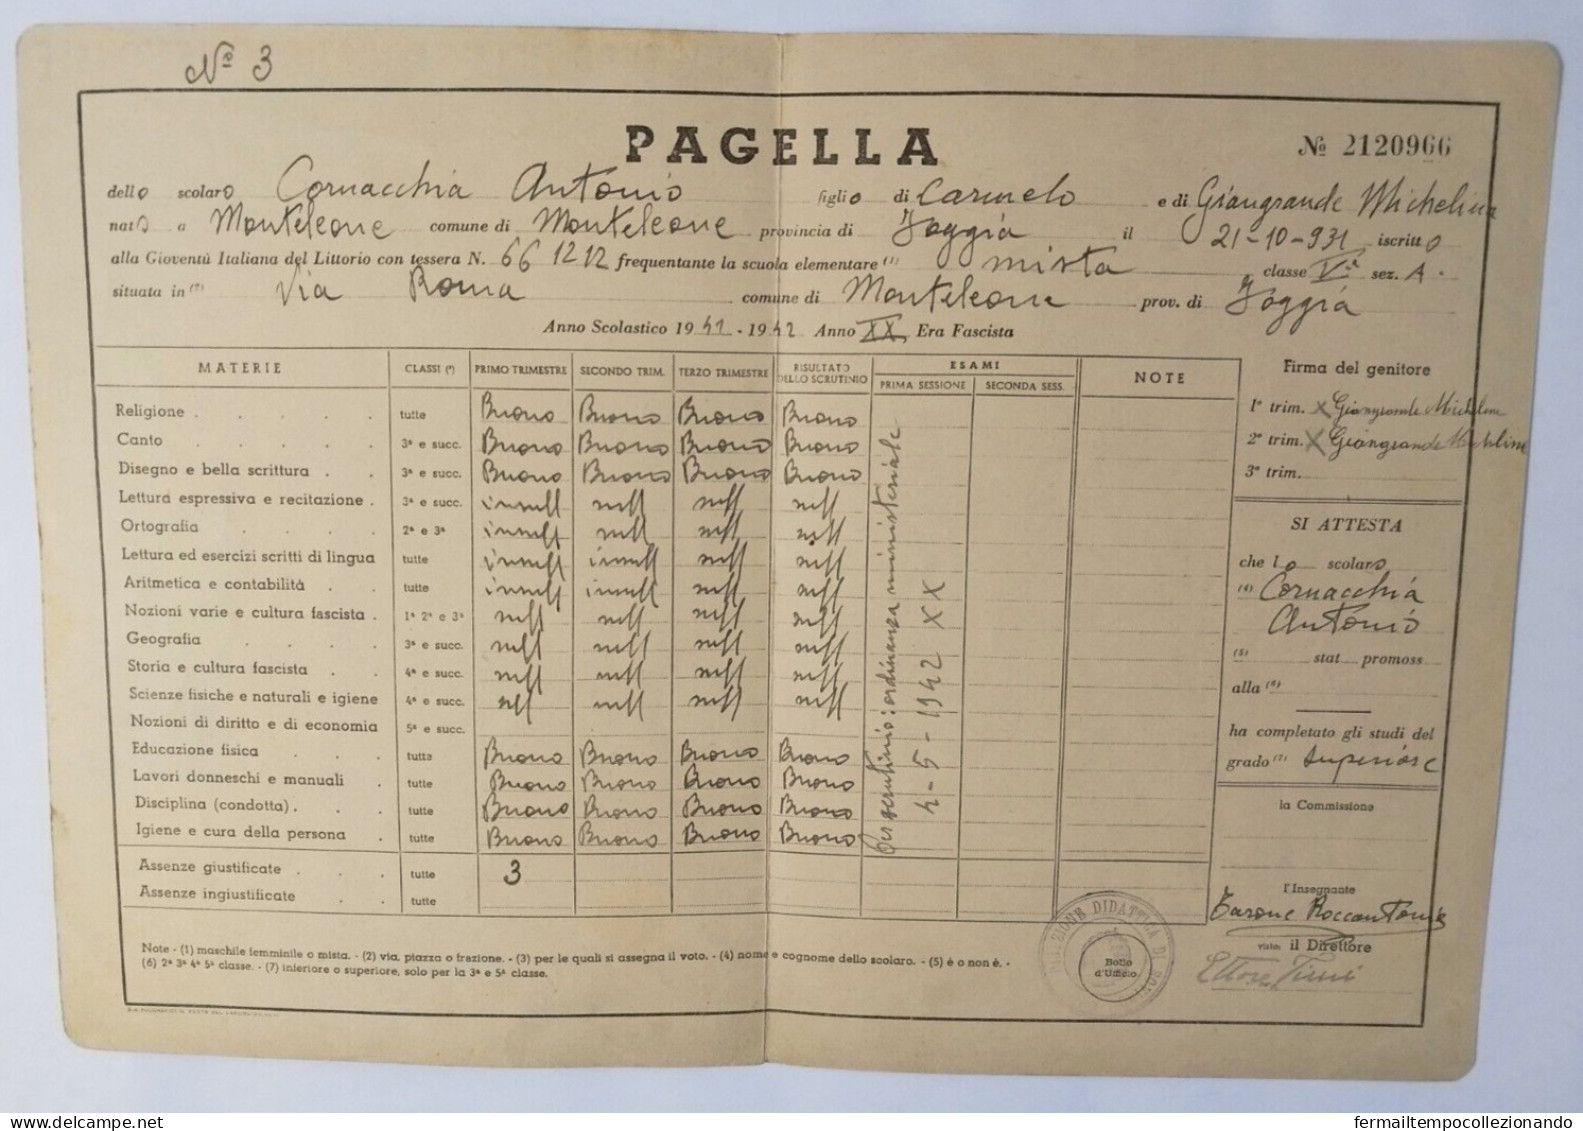 Nº 3
PAGELLA
Nº 2120966
dello scolaro Cornacchia Antonio figlio di Carmelo e di Giangrande Michelina
nato a Monteleone comune di Monteleone provincia di Foggia il 21-10-931 iscritto
alla Gioventù Italiana del Littorio con tessera N. 661212 frequentante la scuola elementare (1) mista classe Vª sez. A.
situata in (2) Via Roma comune di Monteleone prov. di Foggia
Anno Scolastico 1941 - 1942 Anno XX Era Fascista
MATERIE CLASSI (3) PRIMO TRIMESTRE SECONDO TRIM. TERZO TRIMESTRE RISULTATO DELLO SCRUTINIO ESAMI PRIMA SESSIONE SECONDA SESS. NOTE
Religione . . . . . tutte Buono Buono Buono Buono
Canto . . . . 3ª e succ. Buono Buono Buono Buono
Disegno e bella scrittura . . 3ª e succ. Buono Buono Buono Buono
Lettura espressiva e recitazione . 3ª e succ. insuff suff suff suff
Ortografia . . . . 2ª e 3ª insuff suff suff suff
Lettura ed esercizi scritti di lingua tutte insuff insuff suff suff
Aritmetica e contabilità . . tutte insuff insuff suff suff
Nozioni varie e cultura fascista . 1ª 2ª e 3ª suff suff suff suff
Geografia . . . . 3ª e succ. suff suff suff suff
Storia e cultura fascista . . 4ª e succ. suff suff suff suff
Scienze fisiche e naturali e igiene 4ª e succ. suff suff suff suff
Nozioni di diritto e di economia 5ª e succ.
Educazione fisica . . . tutte Buono Buono Buono Buono
Lavori donneschi e manuali . tutte Buono Buono Buono Buono
Disciplina (condotta) . . . tutte Buono Buono Buono Buono
Igiene e cura della persona . tutte Buono Buono Buono Buono
Assenze giustificate . . . tutte 3
Assenze ingiustificate . . tutte
Per scrutinio: ordinanza ministeriale
4-5-1942 XX
Firma del genitore
1º trim. X Giangrande Michelina
2º trim. X Giangrande Michelina
3º trim.
SI ATTESTA
che lo scolaro
(4) Cornacchia
Antonio
(5) stat promoss
alla (6)
ha completato gli studi del
grado (7) superiore
la Commissione
l'Insegnante
Barone Roccantonio
visto: il Direttore
Ettore Tinni
DIREZIONE DIDATTICA DI
Bollo
d'Ufficio
Note - (1) maschile femminile o mista. - (2) via, piazza o frazione. - (3) per le quali si assegna il voto. - (4) nome e cognome dello scolaro. - (5) è o non è. -
(6) 2ª 3ª 4ª 5ª classe. - (7) inferiore o superiore, solo per la 3ª e 5ª classe.
fermailtempocollezionando